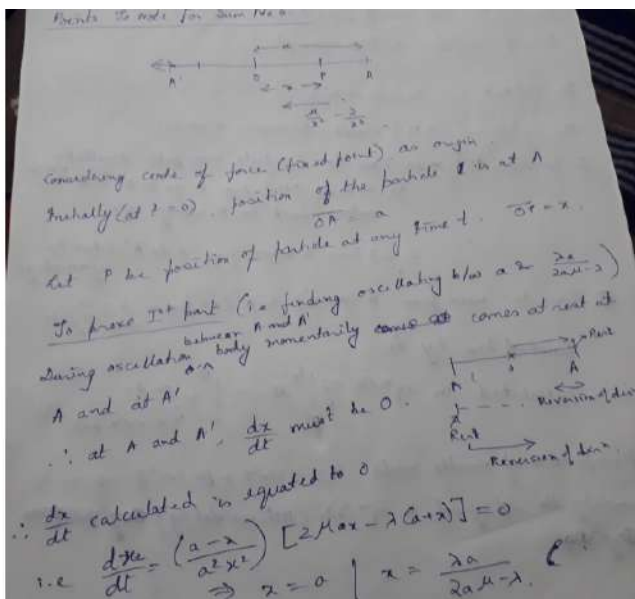 Points to note for Sum No 6
a
A' O P A
x
μ/x² - λ/x³
Considering centre of force (fixed point) as origin
Initially (at t = 0). position of the particle is at A
OA = a
Let P be position of particle at any time t. OP = x.
To prove Ist part (i.e finding oscillating b/w a & λa/(2aμ-λ))
between A and A'
During oscillation body momentarily comes at rest at
A and at A'
∴ at A and A', dx/dt must be 0.
Rest
A' A
Reversion of dirn
Rest
Reversion of dirn.
∴ dx/dt calculated is equated to 0
i.e dx/dt = ((a-x)/(a²x²)) [2μax - λ(a+x)] = 0
⇒ x = a | x = λa/(2aμ-λ).